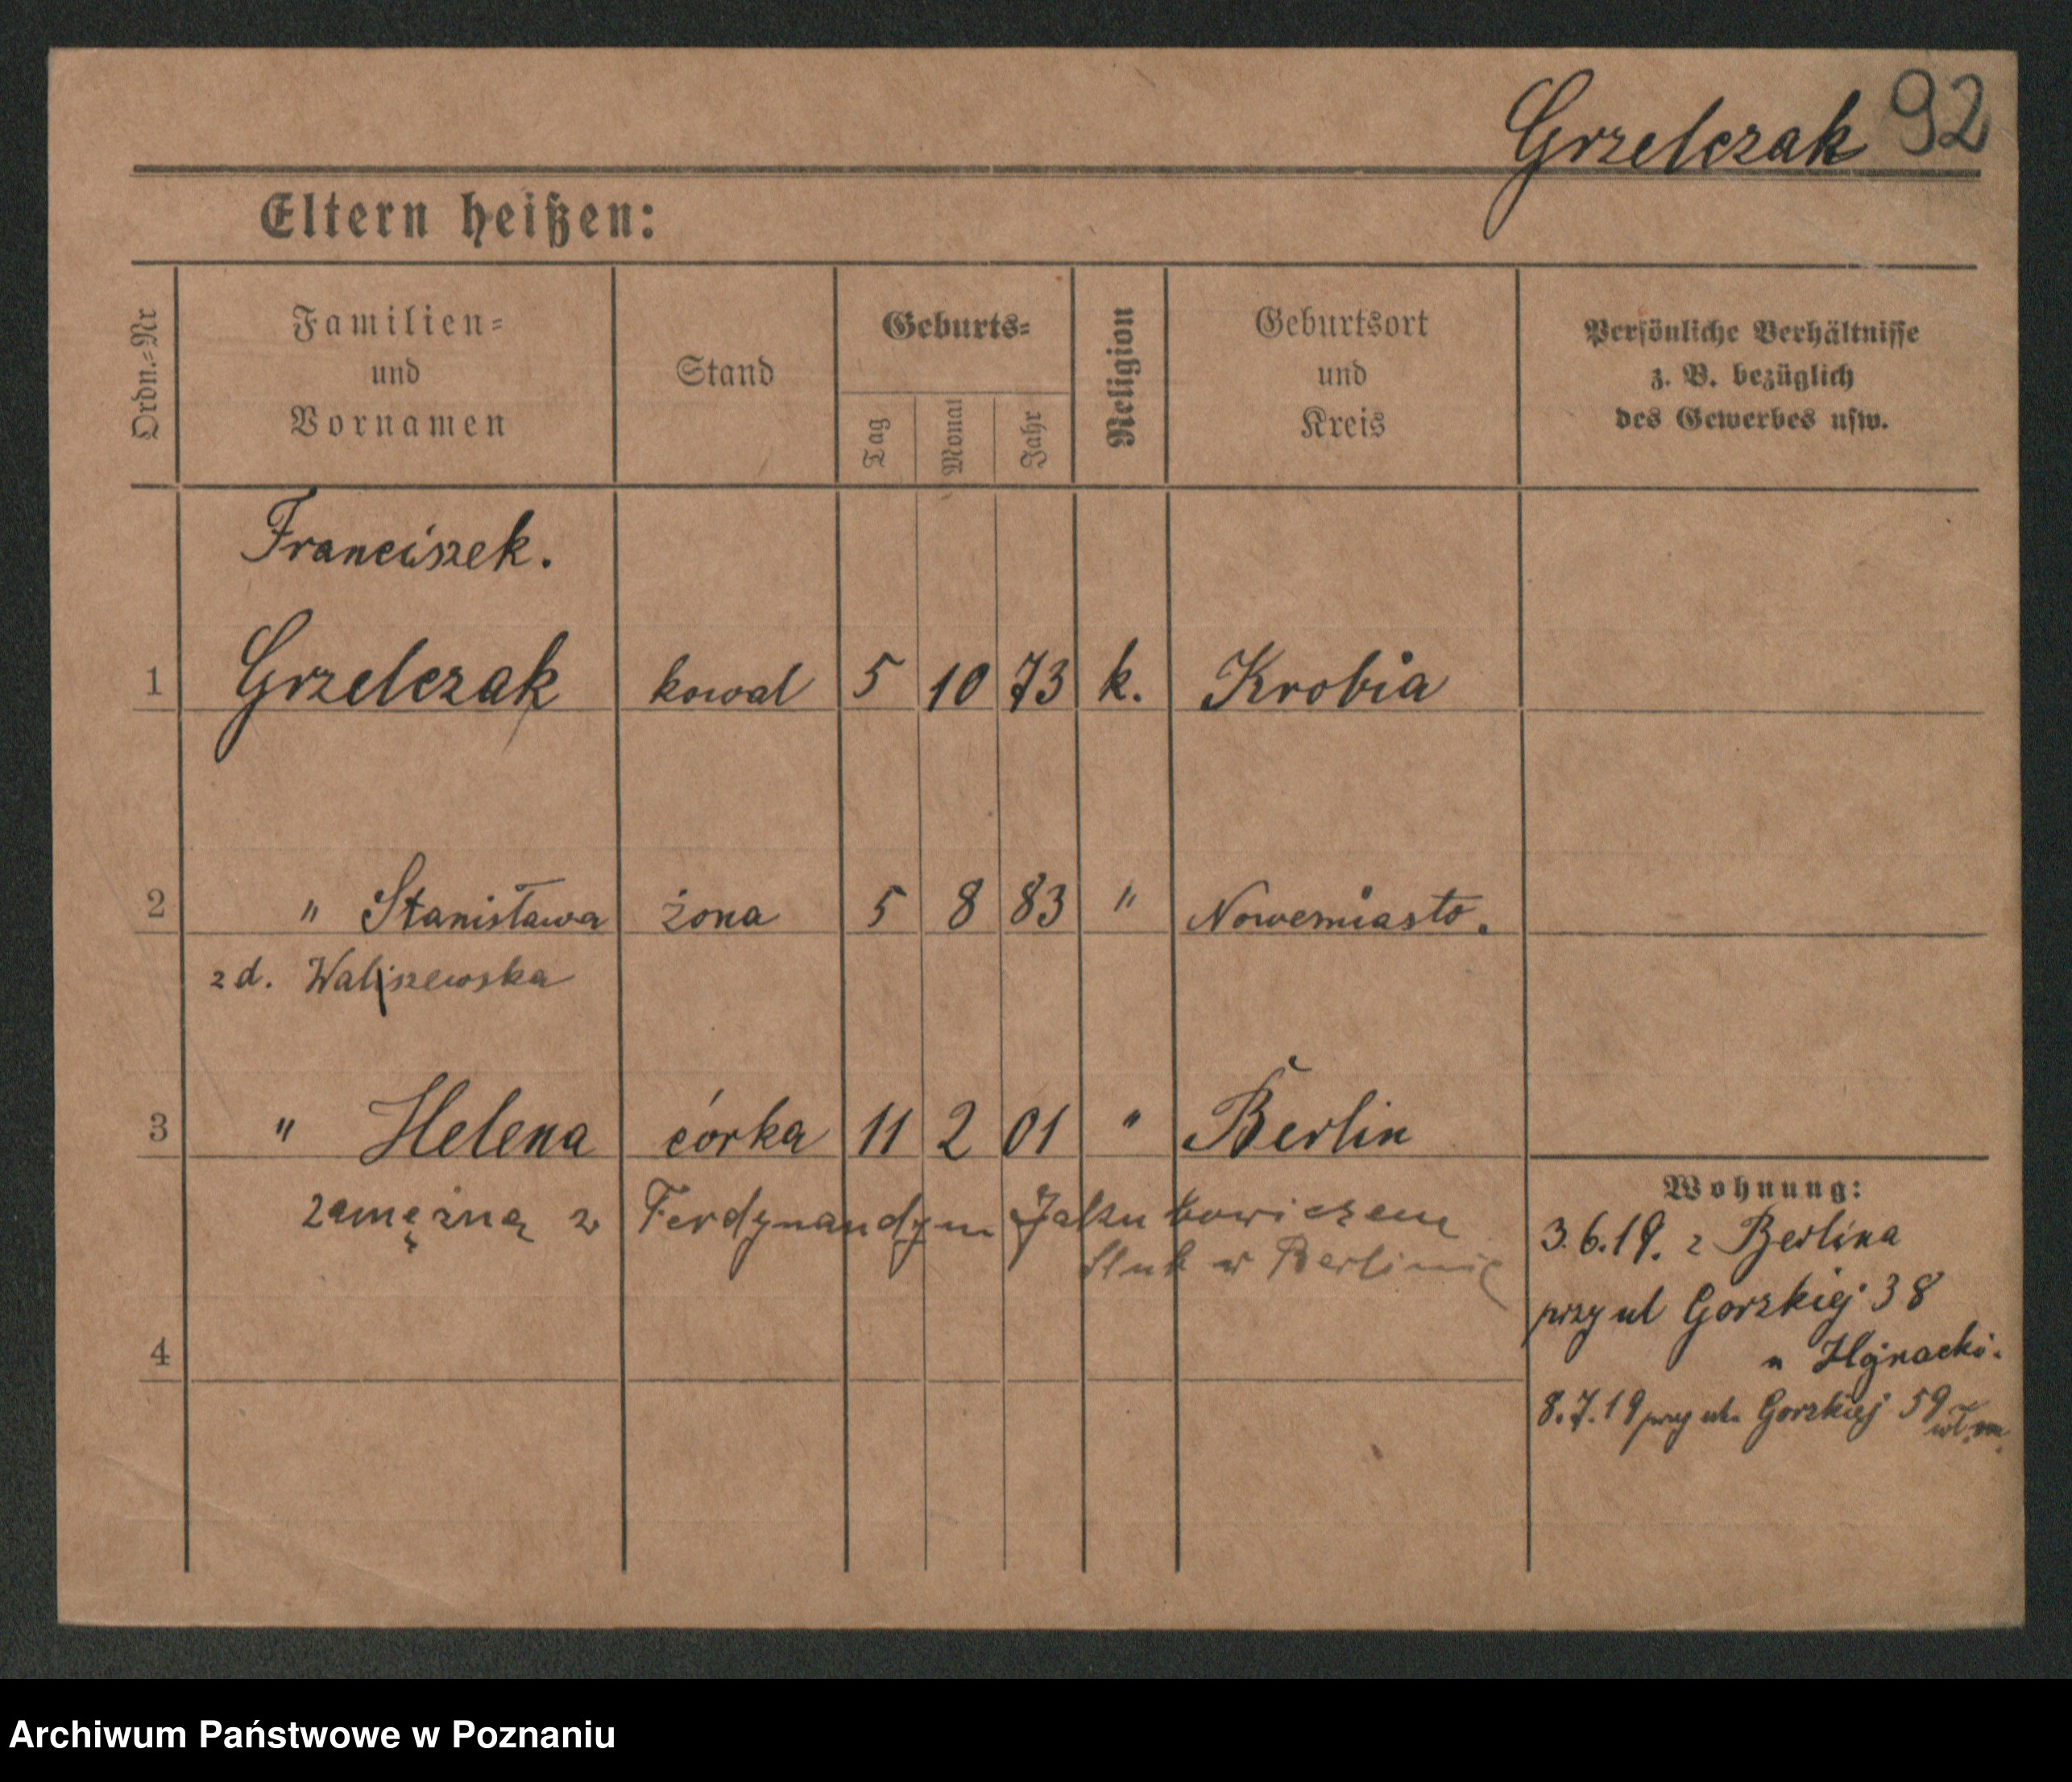 Grzelczak 92
Eltern heißen:
Ordn.=Nr
Familien=
und
Vornamen
Stand
Geburts=
Tag
Monat
Jahr
Religion
Geburtsort
und
Kreis
Persönliche Verhältnisse
z. B. bezüglich
des Gewerbes usw.
Franciszek.
1 Grzelczak kowal 5 10 73 k. Krobia
2 " Stanisława żona 5 8 83 " Nowemiasto.
z d. Waliszewska
3 " Helena córka 11 2 01 " Berlin
zamężna z Ferdynandym Jakubowiczem
ślub w Berlinie
4
Wohnung:
3.6.19. z Berlina
przy ul Gorzkiej 38
u
8.7.19 przy ul. Gorzkiej 59
wł. m.
Archiwum Państwowe w Poznaniu